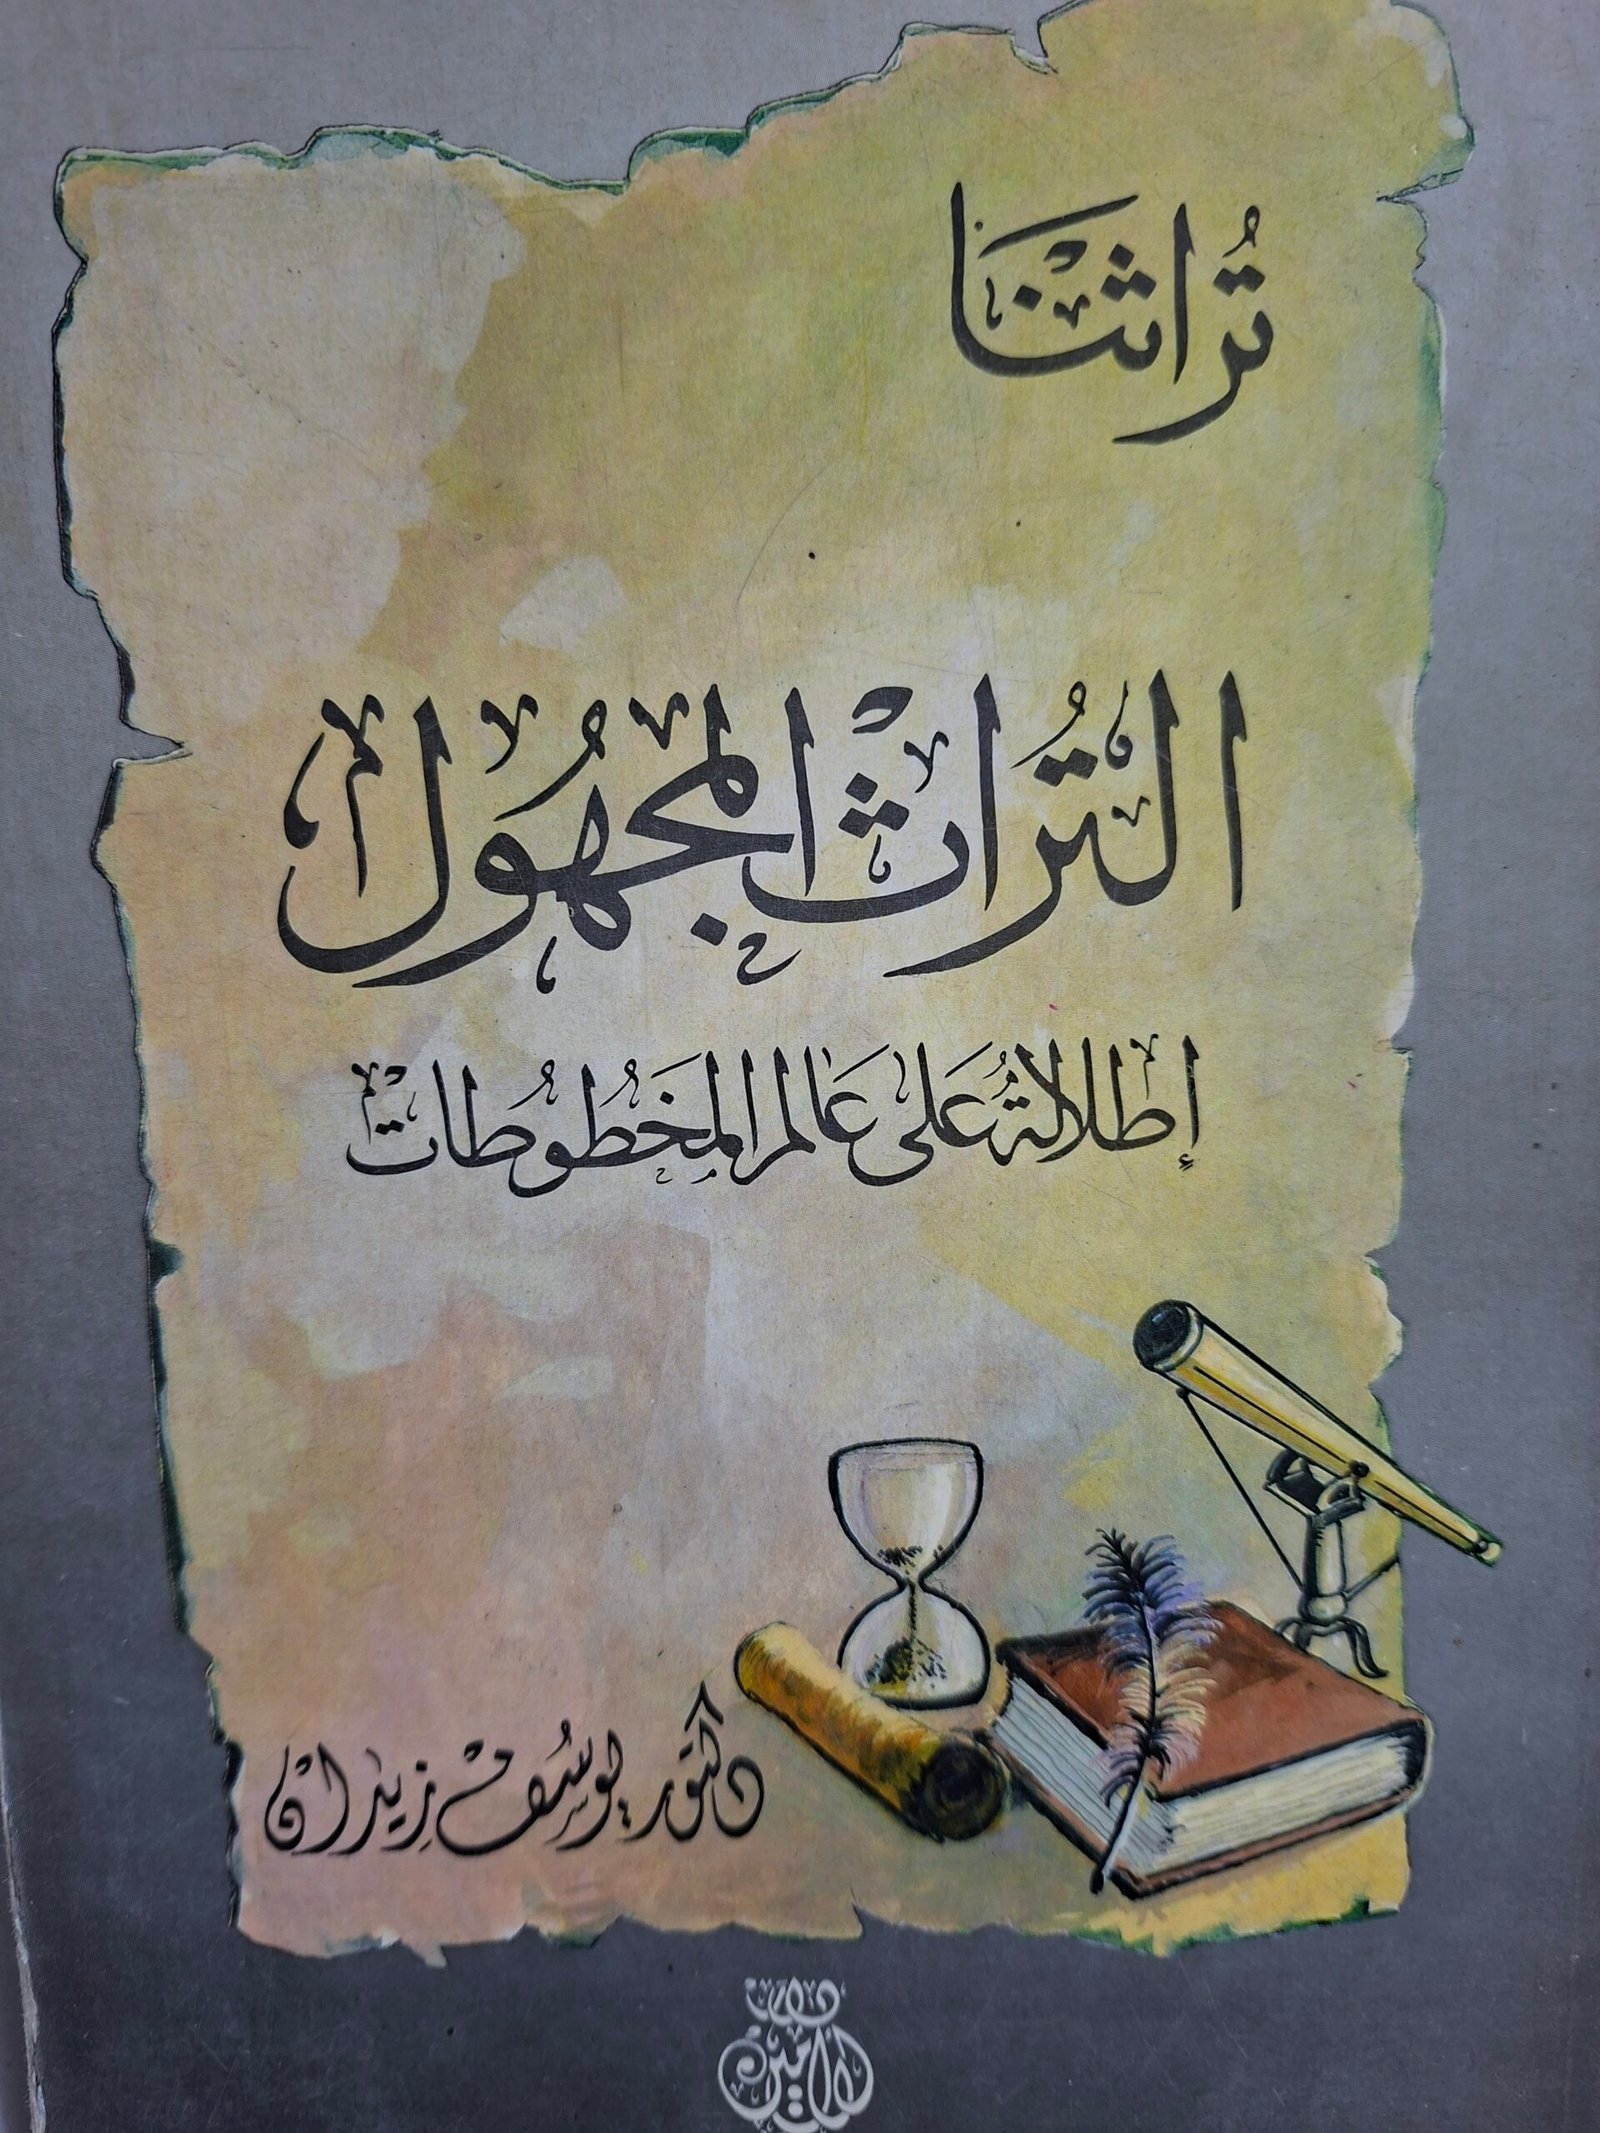 تُراثنَا
التُراث المجهُول
إطلالةُ عَلى عَالم المخَطُوطات
دكتور يوسُف زيدان
دار الأمين